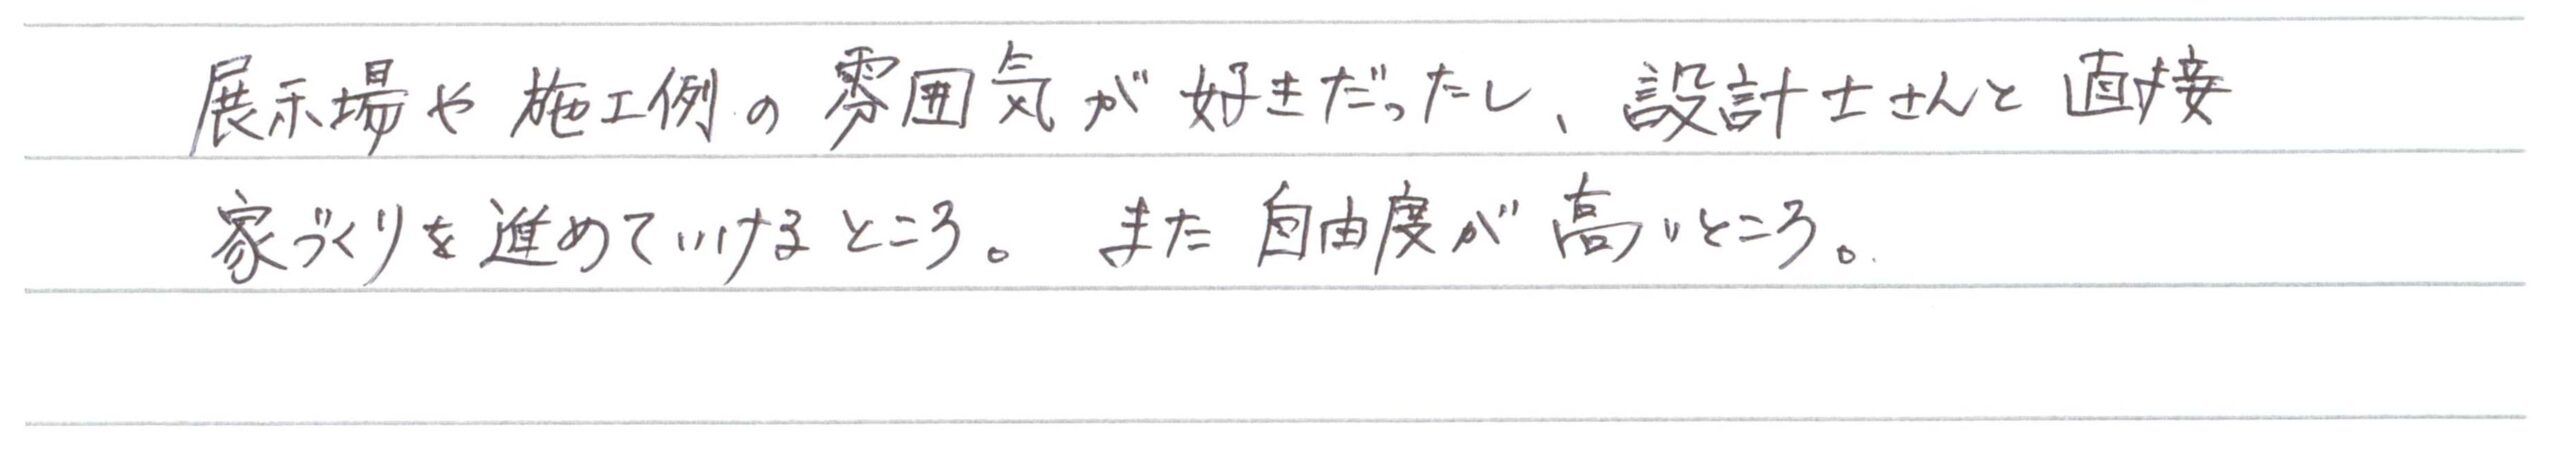 展示場や施工例の雰囲気が好きだったし、設計士さんと直接
家づくりを進めていけるところ。また自由度が高いところ。